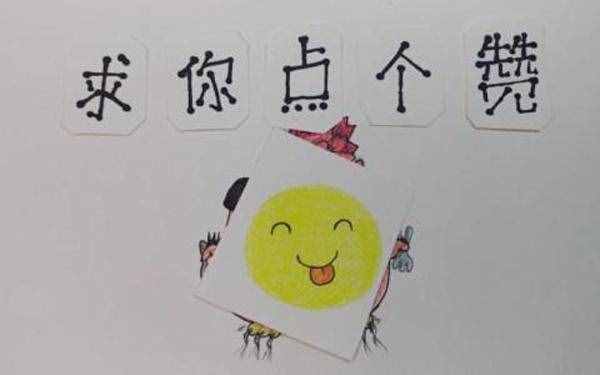 求你点个赞